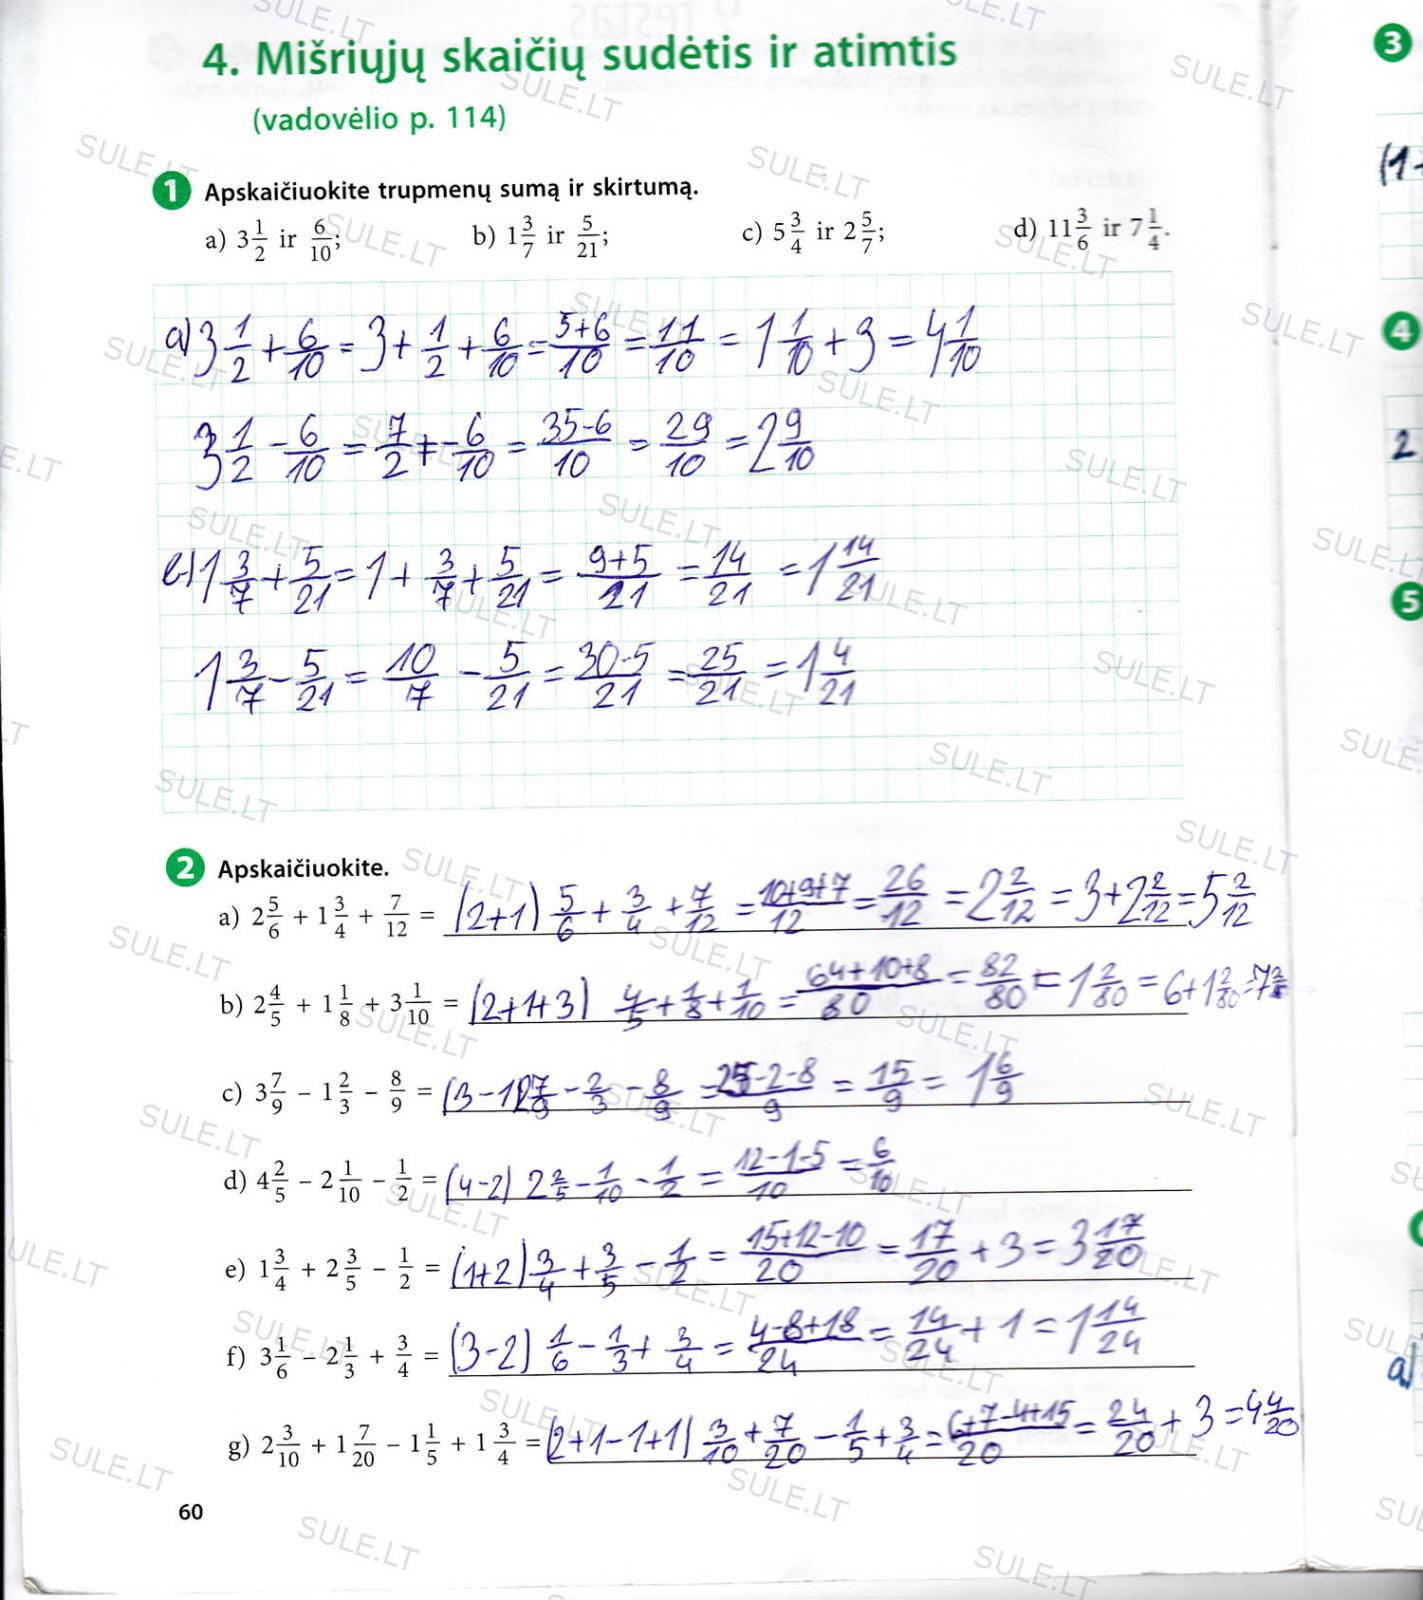 4. Mišriųjų skaičių sudėtis ir atimtis
(vadovėlio p. 114)
1 Apskaičiuokite trupmenų sumą ir skirtumą.
a) 3 1/2 ir 6/10; b) 1 3/7 ir 5/21; c) 5 3/4 ir 2 5/7; d) 11 3/6 ir 7 1/4.
a) 3 1/2 + 6/10 = 3 + 1/2 + 6/10 = 5+6/10 = 11/10 = 1 1/10 + 3 = 4 1/10
3 1/2 - 6/10 = 7/2 - 6/10 = 35-6/10 = 29/10 = 2 9/10
b) 1 3/7 + 5/21 = 1 + 3/7 + 5/21 = 9+5/21 = 14/21 = 1 14/21
1 3/7 - 5/21 = 10/7 - 5/21 = 30-5/21 = 25/21 = 1 4/21
2 Apskaičiuokite.
a) 2 5/6 + 1 3/4 + 7/12 = (2+1) 5/6 + 3/4 + 7/12 = 10+9+7/12 = 26/12 = 2 2/12 = 3+2 2/12 = 5 2/12
b) 2 4/5 + 1 1/8 + 3 1/10 = (2+1+3) 4/5 + 1/8 + 1/10 = 64+10+8/80 = 82/80 = 1 2/80 = 6+1 2/80 = 7 2/80
c) 3 7/9 - 1 2/3 - 8/9 = (3-1) 2 7/9 - 2/3 - 8/9 = 25-2-8/9 = 15/9 = 1 6/9
d) 4 2/5 - 2 1/10 - 1/2 = (4-2) 2 2/5 - 1/10 - 1/2 = 12-1-5/10 = 6/10
e) 1 3/4 + 2 3/5 - 1/2 = (1+2) 3/4 + 3/5 - 1/2 = 15+12-10/20 = 17/20 + 3 = 3 17/20
f) 3 1/6 - 2 1/3 + 3/4 = (3-2) 1/6 - 1/3 + 3/4 = 4-8+18/24 = 14/24 + 1 = 1 14/24
g) 2 3/10 + 1 7/20 - 1 1/5 + 1 3/4 = (2+1-1+1) 3/10 + 7/20 - 1/5 + 3/4 = 6+7-4+15/20 = 24/20 + 3 = 4 4/20
60
3
(1-
4
2
5
a)
SULE.LT